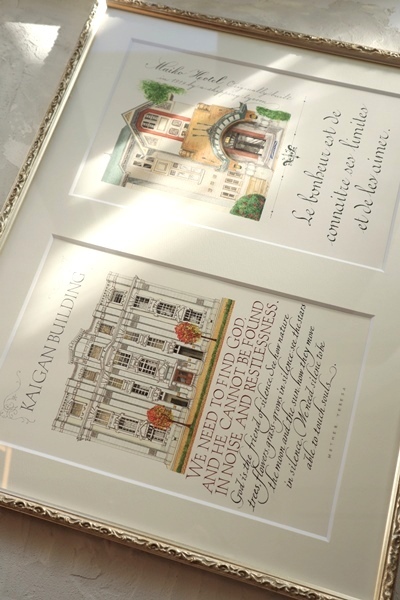 Maiko Hotel
Le bonheur est de
connaître ses limites
et de les aimer.
KAIGAN BUILDING
WE NEED TO FIND GOD,
AND HE CANNOT BE FOUND
IN NOISE AND RESTLESSNESS.
God is the friend of silence. See how nature
trees, flowers, grass-grows in silence; see the stars
the moon and the sun, how they move
in silence. We need silence to be
able to touch souls.
MOTHER TERESA